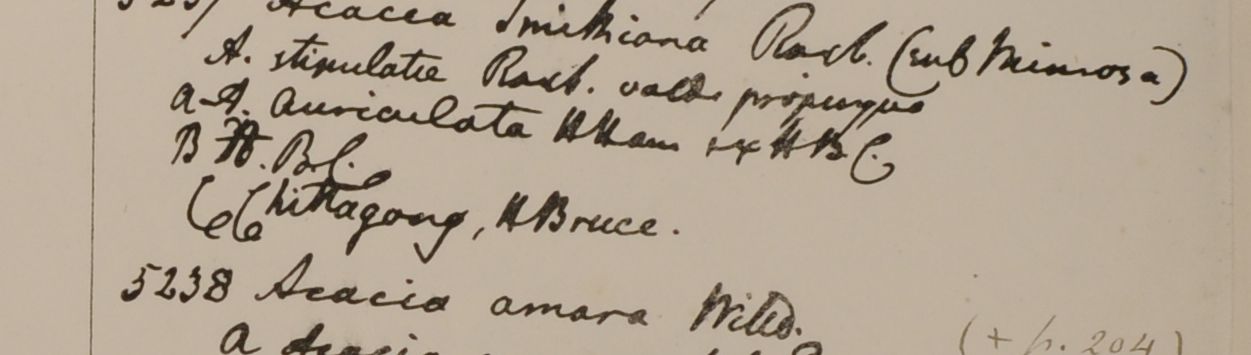 5237 Acacia Smithiana Roxb. (sub Mimosa)
A. stipulatae Roxb. valde propinqua
a A. auriculata HHam ex HBC.
B H. BC.
C Chittagong, HBruce.
5238 Acacia amara Willd.
(+ p. 204)
a Acacia